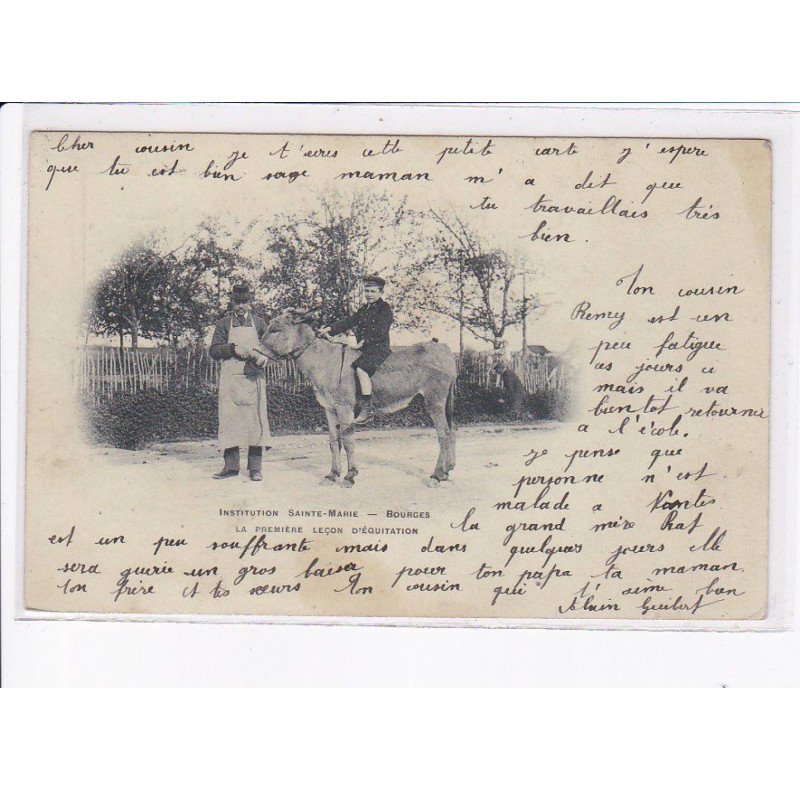 Cher cousin je t'ecres cette petite carte j'espere
que tu est bien sage maman m'a dit que
tu travaillais très
bien.
Ton cousin
Remy est un
peu fatigue
ces jours ci
mais il va
bientot retourner
a l'école.
je pense que
personne n'est
malade a Nantes
INSTITUTION SAINTE-MARIE — BOURGES
LA PREMIÈRE LEÇON D'ÉQUITATION
la grand mère Rat
est un peu souffrante mais dans quelques jours elle
sera guerie un gros baiser pour ton papa ta maman.
ton frère et tes sœurs Ton cousin qui t'aime bien
Alain Guibert